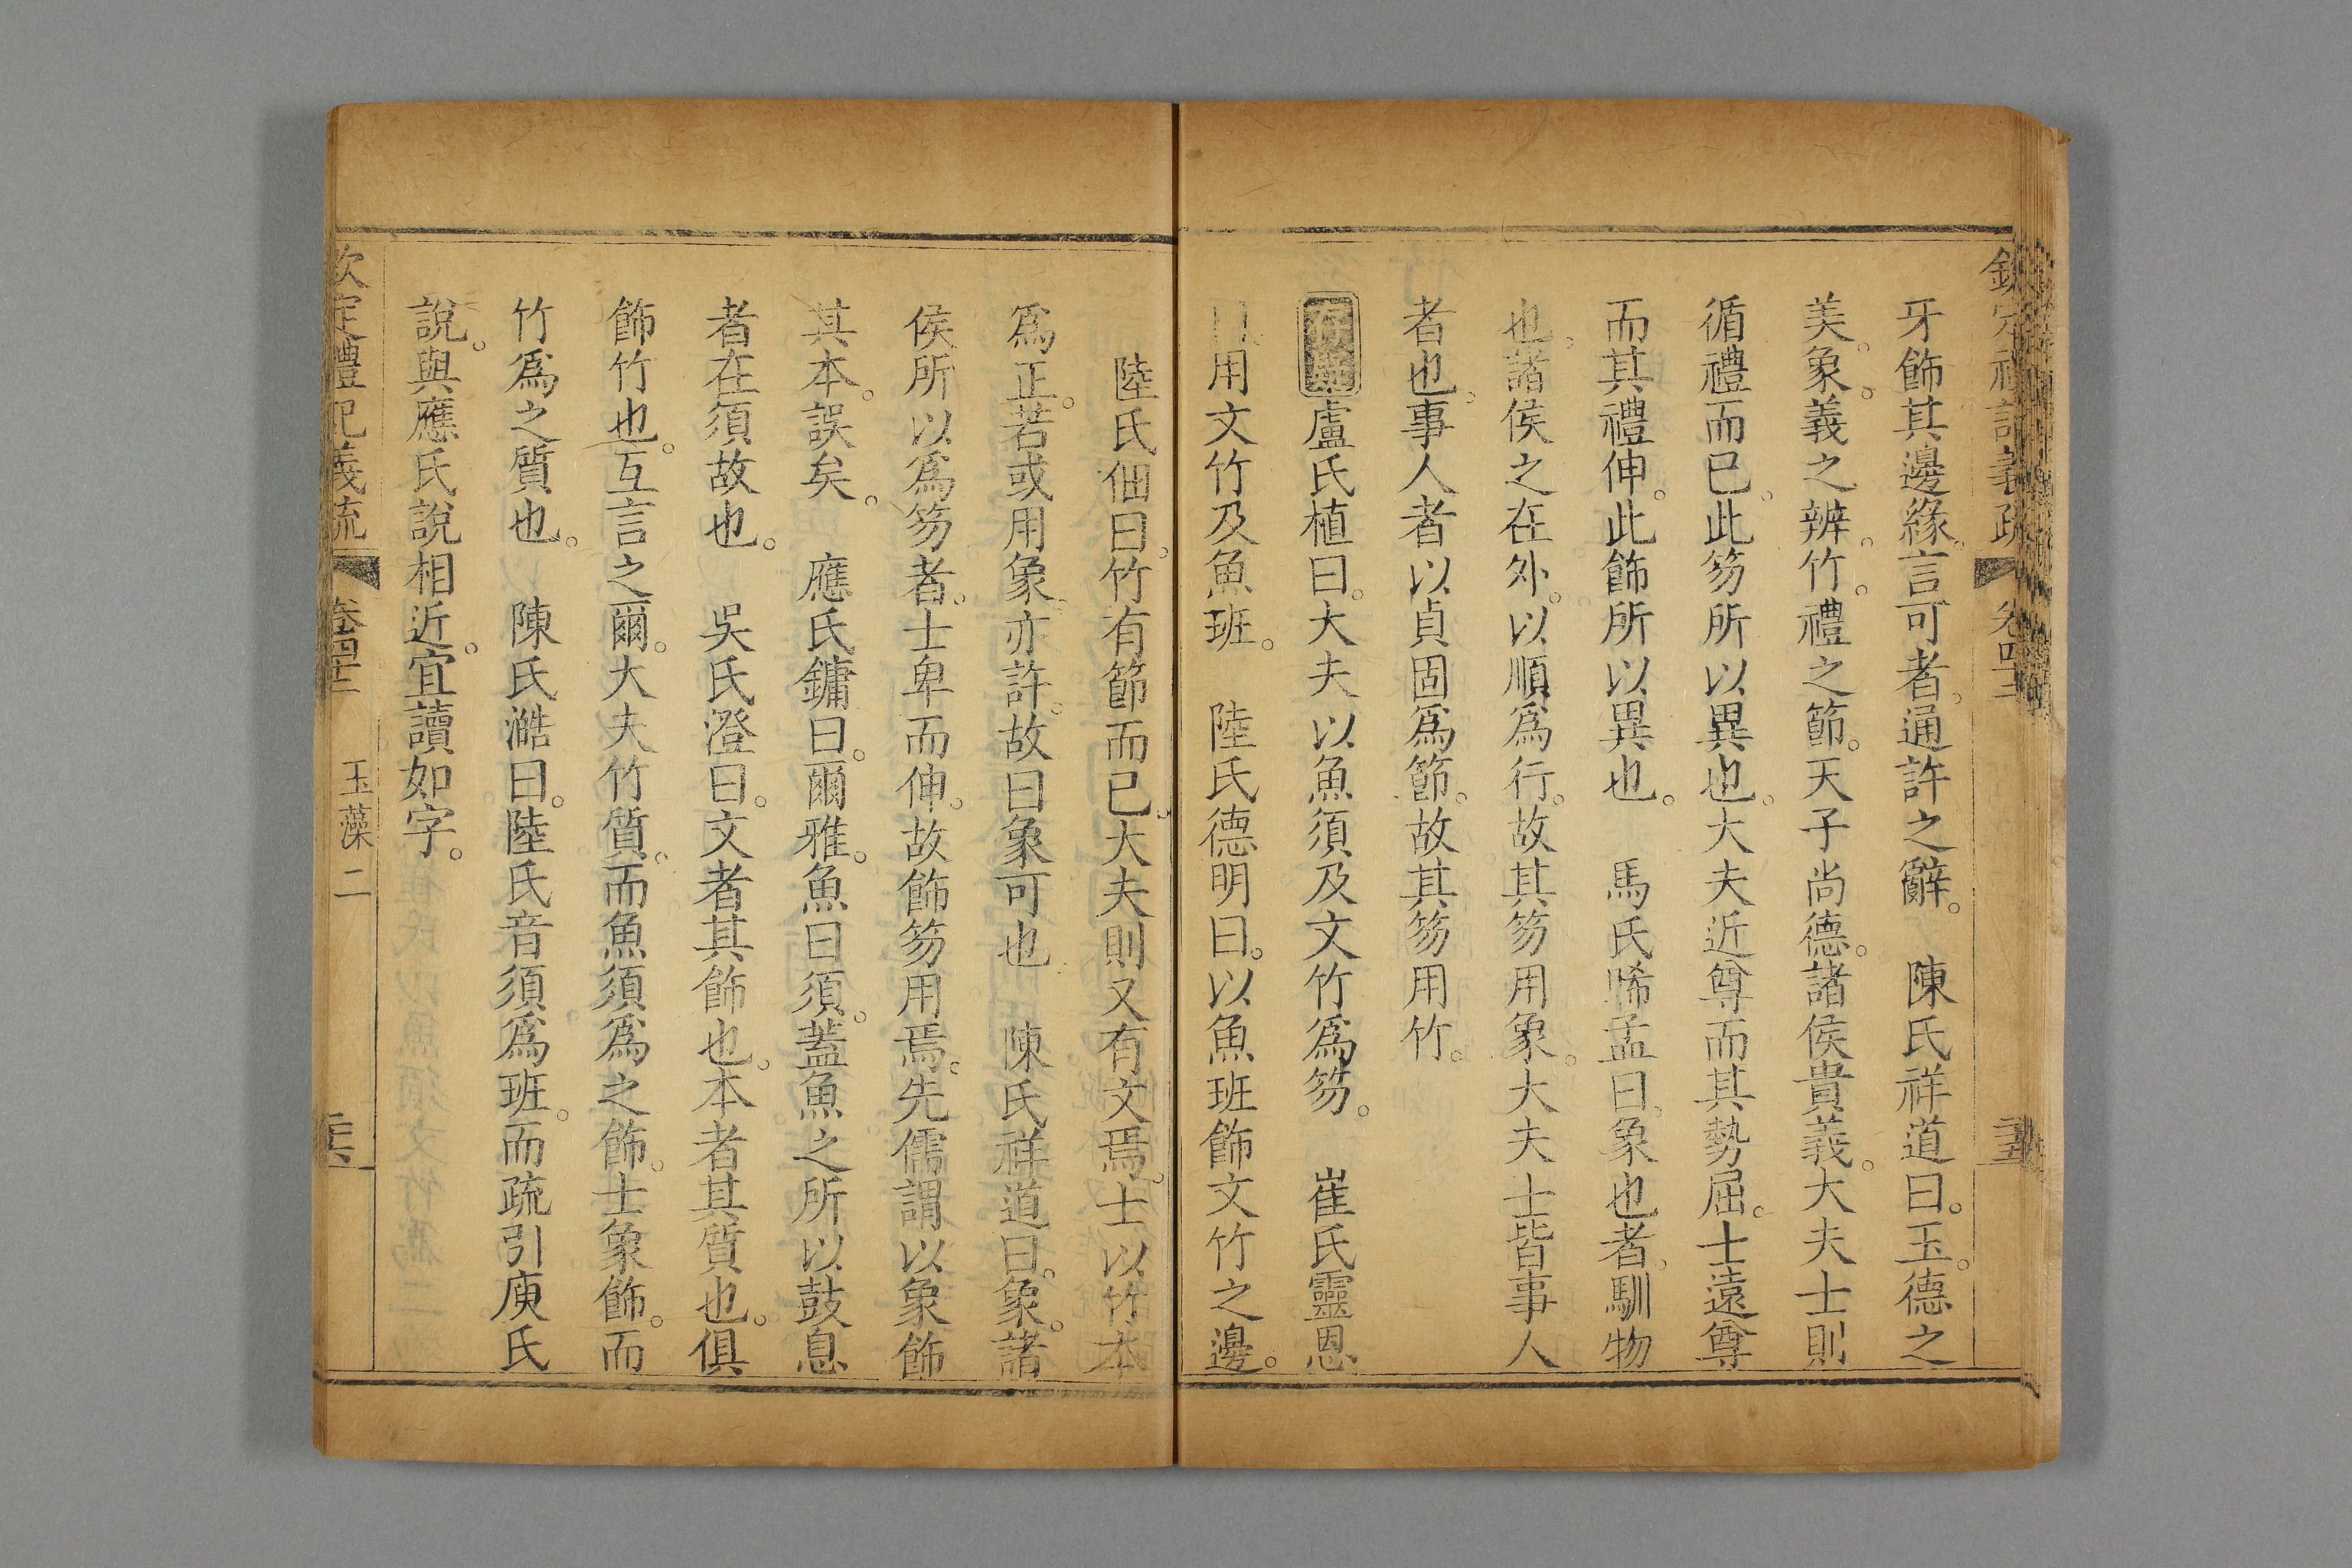 欽定禮記義疏 卷四十二 三十五
牙飾其邊緣。言可者。通許之辭。 陳氏祥道曰。玉。德之
美。象。義之辨。竹。禮之節。天子尚德。諸侯貴義。大夫士則
循禮而已。此笏所以異也。大夫近尊而其勢屈。士遠尊
而其禮伸。此飾所以異也。 馬氏晞孟曰。象也者。馴物
也。諸侯之在外。以順爲行。故其笏用象。大夫士皆事人
者也。事人者以貞固爲節。故其笏用竹。
存疑盧氏植曰。大夫以魚須及文竹爲笏。 崔氏靈恩
曰。用文竹及魚班。 陸氏德明曰。以魚班飾文竹之邊。
陸氏佃曰。竹有節而已。大夫則又有文焉。士以竹本
爲正。若或用象。亦許。故曰象可也。 陳氏祥道曰。象。諸
侯所以爲笏者。士卑而伸。故飾笏用焉。先儒謂以象飾
其本。誤矣。 應氏鏞曰。爾雅。魚曰須。蓋魚之所以鼓息
者在須故也。 吳氏澄曰。文者其飾也。本者其質也。俱
飾竹也。互言之爾。大夫竹質。而魚須爲之飾。士象飾。而
竹爲之質也。 陳氏澔曰。陸氏音須爲班。而疏引庾氏
說。與應氏說相近。宜讀如字。
欽定禮記義疏 卷四十二 玉藻二